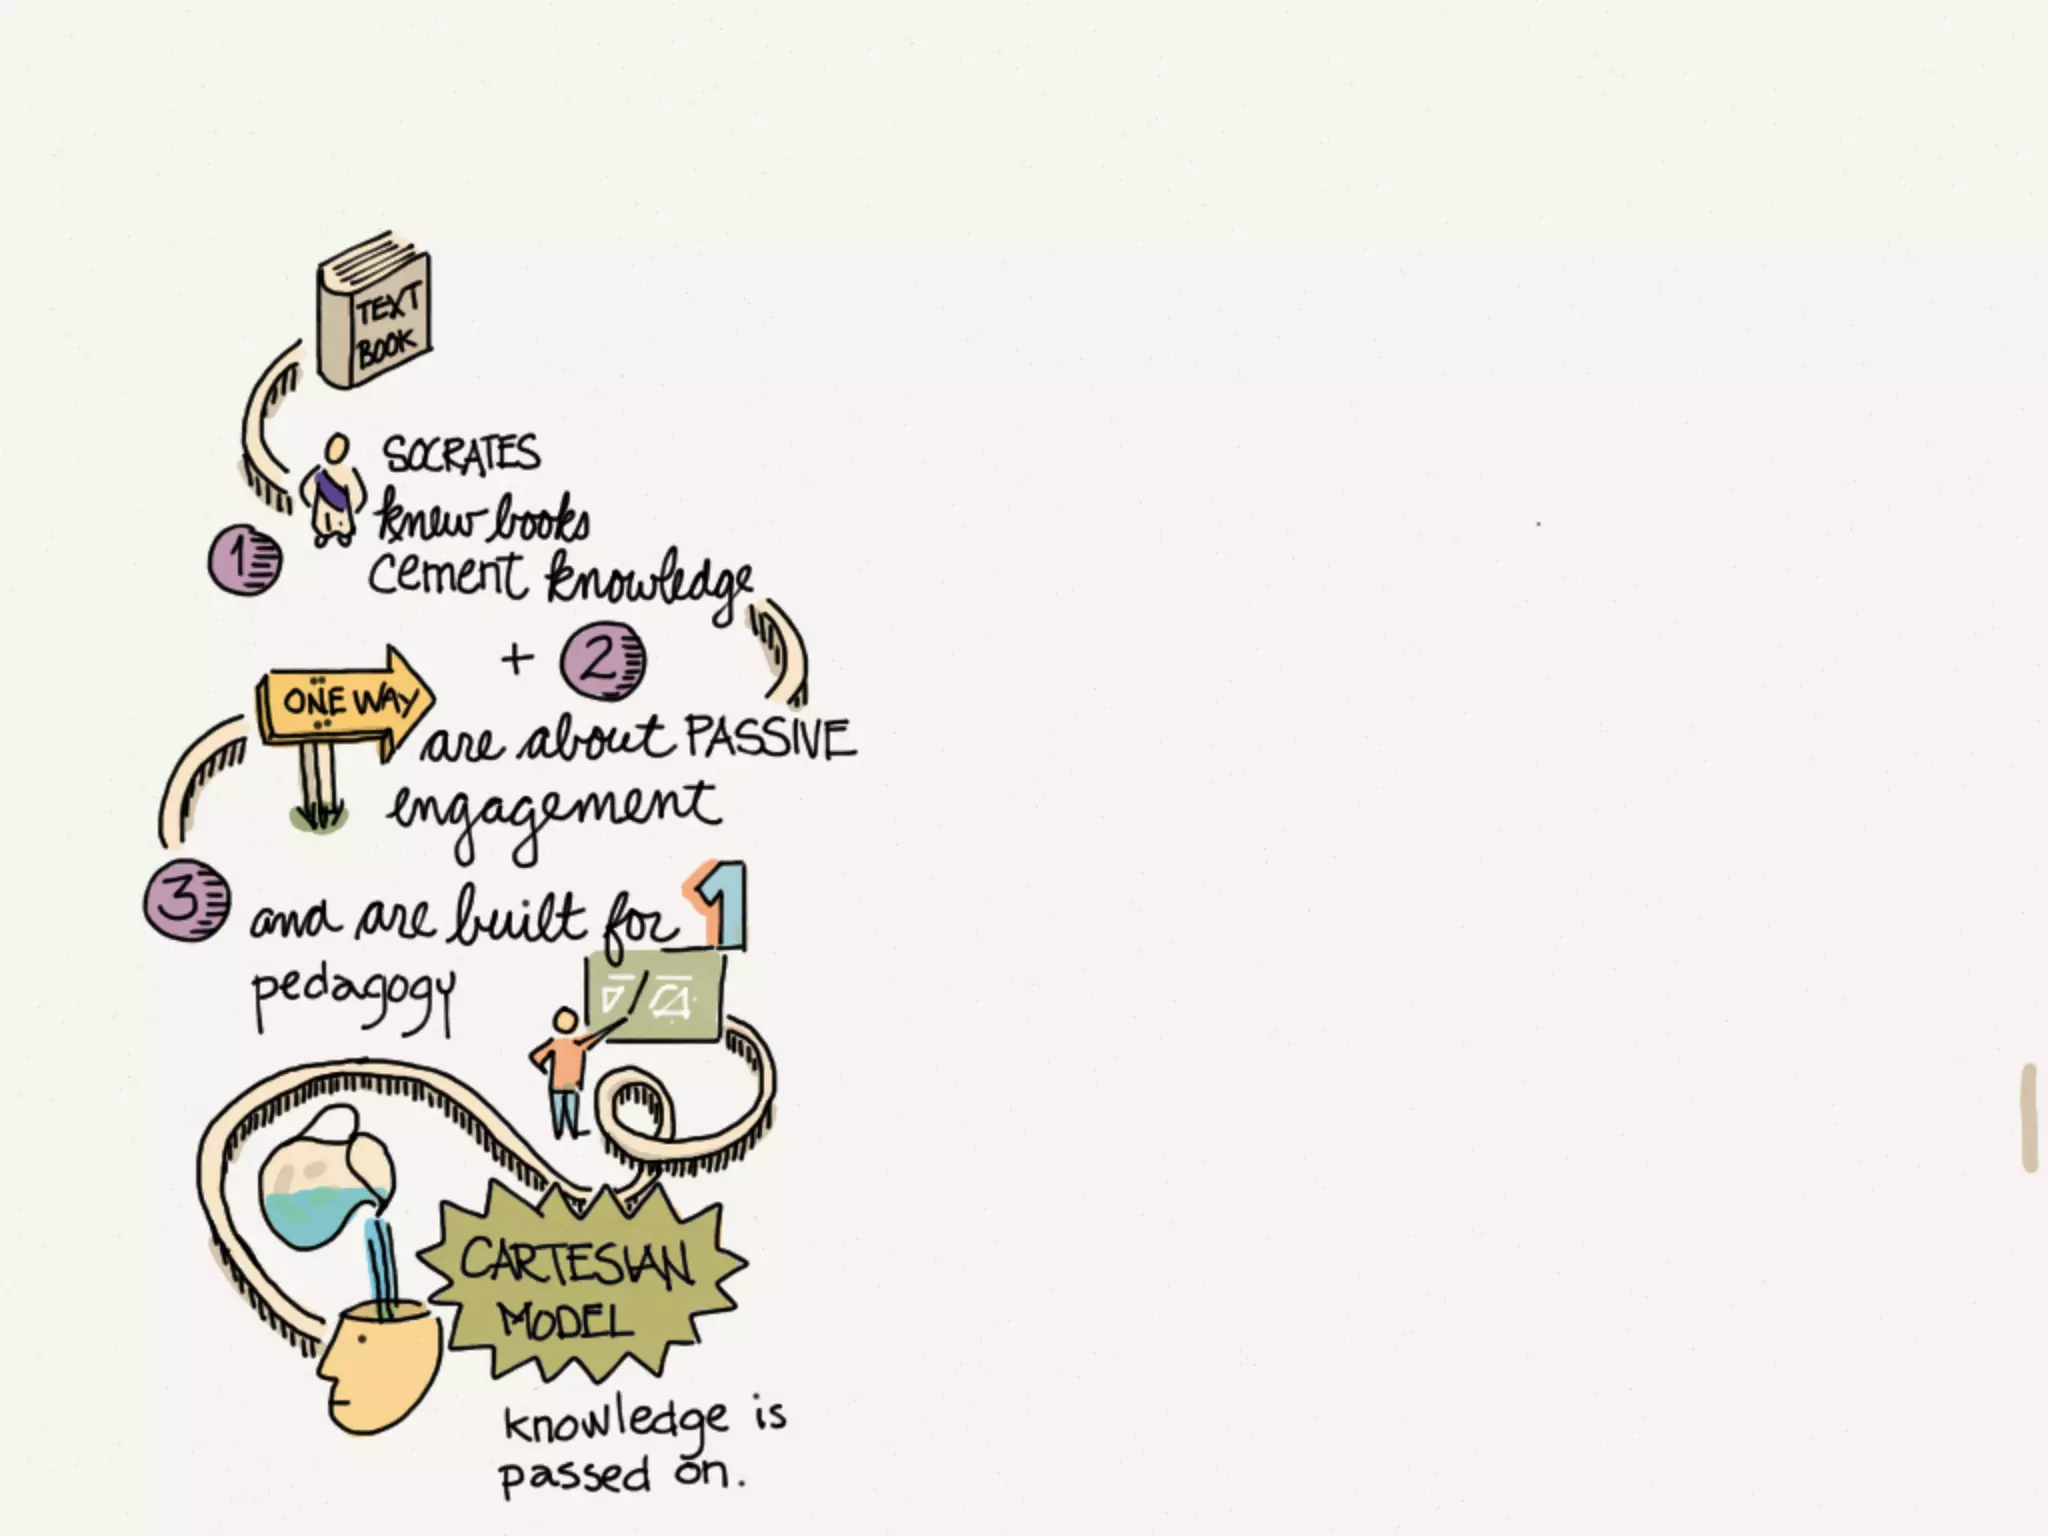 TEXT
BOOK
SOCRATES
knew books
1
cement knowledge
+ 2
ONE WAY
are about PASSIVE
engagement
3 and are built for 1
pedagogy
CARTESIAN
MODEL
knowledge is
passed on.